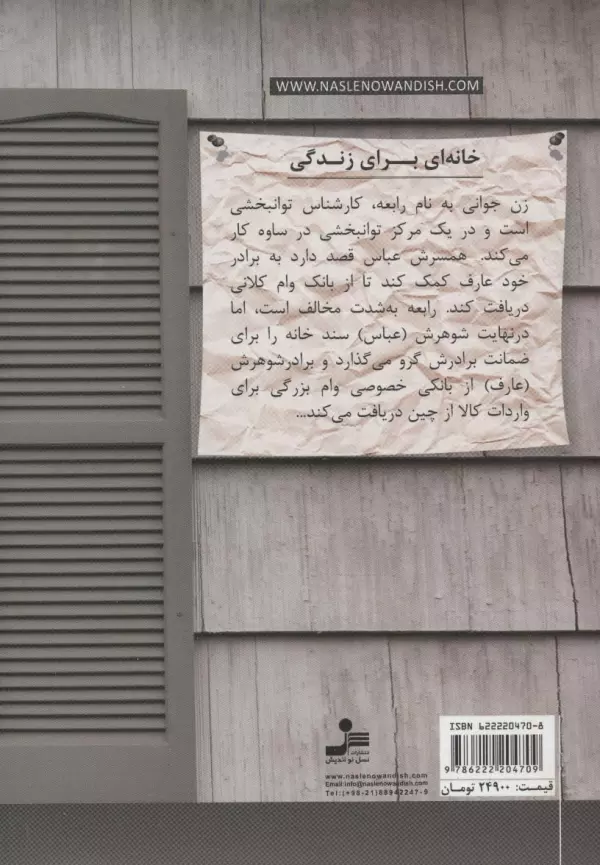 WWW.NASLENOWANDISH.COM
خانه‌ای برای زندگی
زن جوانی به نام رابعه، کارشناس توانبخشی
است و در یک مرکز توانبخشی در ساوه کار
می‌کند. همسرش عباس قصد دارد به برادر
خود عارف کمک کند تا از بانک وام کلانی
دریافت کند. رابعه به‌شدت مخالف است، اما
درنهایت شوهرش (عباس) سند خانه را برای
ضمانت برادرش گرو می‌گذارد و برادرشوهرش
(عارف) از بانکی خصوصی وام بزرگی برای
واردات کالا از چین دریافت می‌کند...
انتشارات
نسل نواندیش
www.naslenowandish.com
Email:info@naslenowandish.com
Tel:(+98-21)88942247-9
ISBN 622220470-8
9 786222 204709
قیمت: ۲۴۹۰۰ تومان